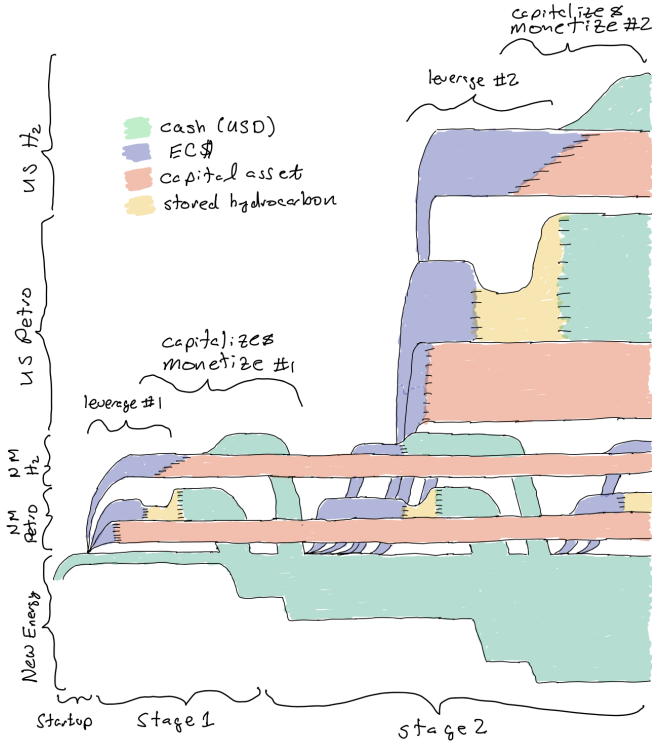 capitalize &
monetize #2
leverage #2
cash (USD)
EC$
capital asset
stored hydrocarbon
US H2
US Petro
capitalize &
monetize #1
leverage #1
NM
H2
NM
Petro
New Energy
Startup
Stage 1
Stage 2